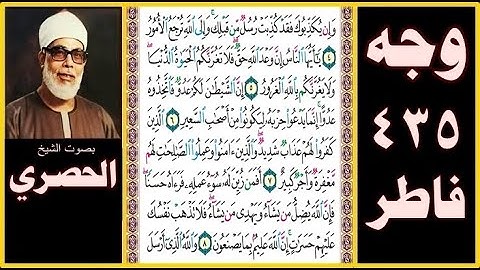 وجه
٤٣٥
فاطر
وَإِن يُكَذِّبُوكَ فَقَدْ كُذِّبَتْ رُسُلٌ مِّن قَبْلِكَ وَإِلَى ٱللَّهِ تُرْجَعُ ٱلْأُمُورُ
٤ يَٰٓأَيُّهَا ٱلنَّاسُ إِنَّ وَعْدَ ٱللَّهِ حَقٌّ فَلَا تَغُرَّنَّكُمُ ٱلْحَيَوٰةُ ٱلدُّنْيَا
وَلَا يَغُرَّنَّكُم بِٱللَّهِ ٱلْغَرُورُ ٥ إِنَّ ٱلشَّيْطَٰنَ لَكُمْ عَدُوٌّ فَٱتَّخِذُوهُ
عَدُوًّا إِنَّمَا يَدْعُوا۟ حِزْبَهُۥ لِيَكُونُوا۟ مِنْ أَصْحَٰبِ ٱلسَّعِيرِ ٦ ٱلَّذِينَ
كَفَرُوا۟ لَهُمْ عَذَابٌ شَدِيدٌ وَٱلَّذِينَ ءَامَنُوا۟ وَعَمِلُوا۟ ٱلصَّٰلِحَٰتِ لَهُم
مَّغْفِرَةٌ وَأَجْرٌ كَبِيرٌ ٧ أَفَمَن زُيِّنَ لَهُۥ سُوٓءُ عَمَلِهِۦ فَرَءَاهُ حَسَنًا
فَإِنَّ ٱللَّهَ يُضِلُّ مَن يَشَآءُ وَيَهْدِى مَن يَشَآءُ فَلَا تَذْهَبْ نَفْسُكَ
عَلَيْهِمْ حَسَرَٰتٍ إِنَّ ٱللَّهَ عَلِيمٌۢ بِمَا يَصْنَعُونَ ٨ وَٱللَّهُ ٱلَّذِىٓ أَرْسَلَ
بصوت الشيخ
الحصري